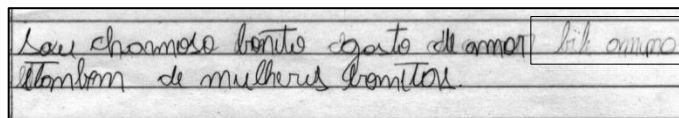 sou charmoso bonito gosto de amor
tambem de mulheres bonitos.